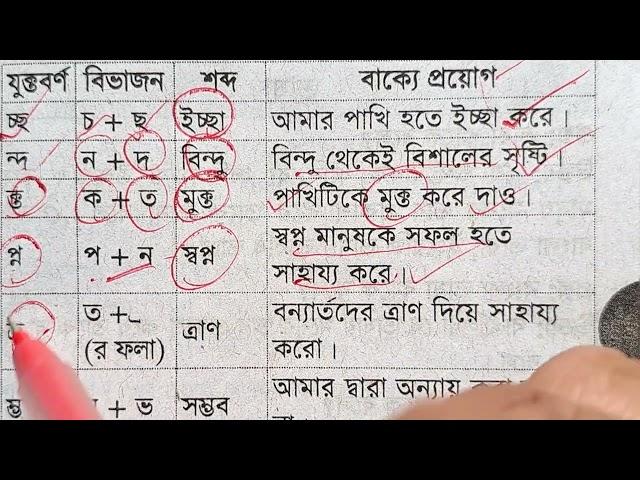 যুক্তবর্ণ বিভাজন শব্দ বাক্যে প্রয়োগ
চ্ছ চ + ছ ইচ্ছা আমার পাখি হতে ইচ্ছা করে।
ন্দ ন + দ বিন্দু বিন্দু থেকেই বিশালের সৃষ্টি।
ক্ত ক + ত মুক্ত পাখিটিকে মুক্ত করে দাও।
প্ন প + ন স্বপ্ন স্বপ্ন মানুষকে সফল হতে
সাহায্য করে।
ত + ্র ত্রাণ বন্যার্তদের ত্রাণ দিয়ে সাহায্য
(র ফলা) করো।
ম্ভ + ভ সম্ভব আমার দ্বারা অন্যায়